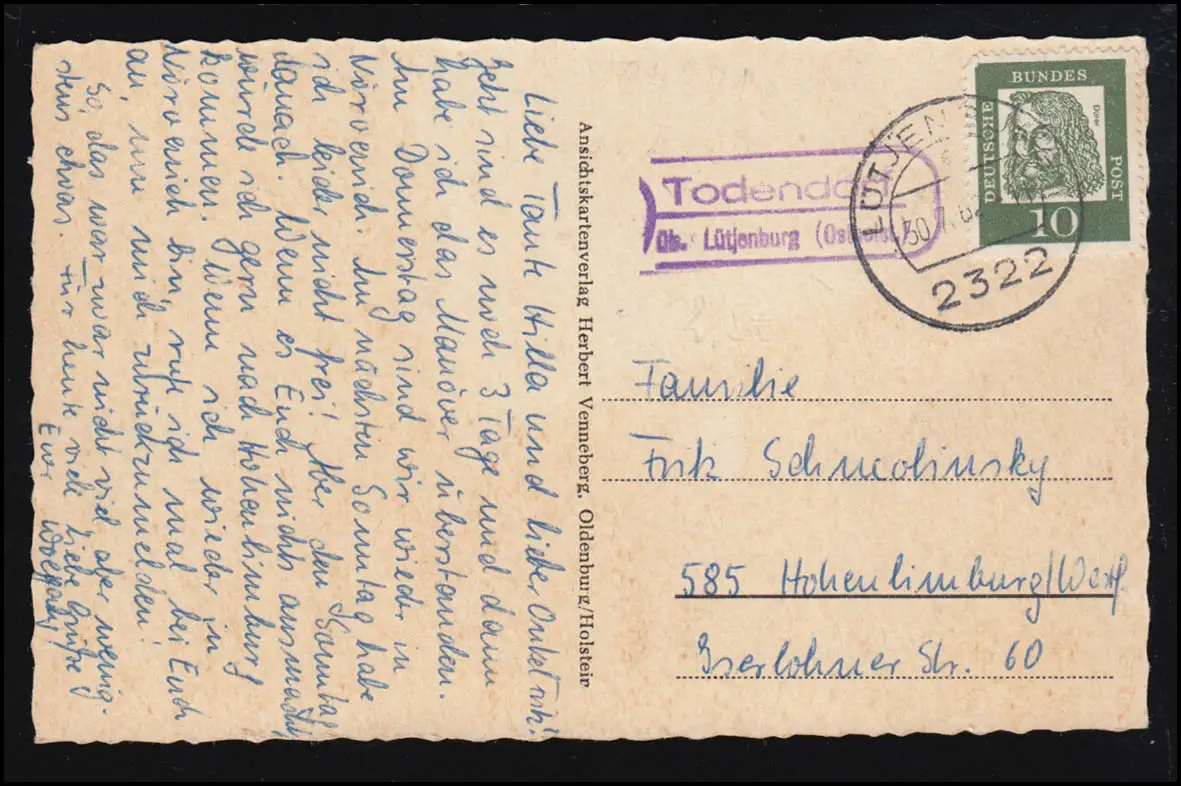 Liebe Tante Hilla und lieber Onkel Fritz!
Jetzt sind es noch 3 Tage und dann
habe ich das Manöver überstanden.
Am Donnerstag sind wir wieder in
Nörvenich. Am nächsten Sonntag habe
ich leider nicht frei! Aber den Sonntag
danach. Wenn es Euch nichts ausmacht,
würde ich gern nach Hohenlimburg
kommen. Wenn ich wieder in
Nörvenich bin, rufe ich mal bei Euch
an, um mich zurückzumelden!
So, das war zwar nicht viel, aber wenig-
stens etwas. Für heute viele liebe Grüße
Euer
Ansichtskartenverlag Herbert Venneberg, Oldenburg/Holstein
Todendorf
üb. Lütjenburg (Ostholst.)
LÜTJENBURG
2322
DEUTSCHE BUNDESPOST
Dürer
10
Familie
Fritz Schmolinsky
585 Hohenlimburg/Westf.
Iserlohner Str. 60